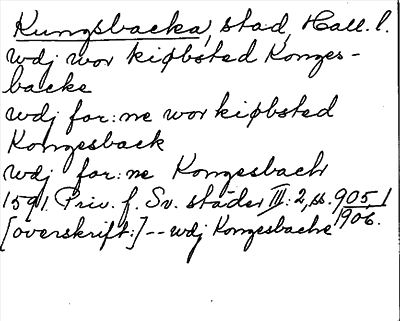 Kungsbacka, stad, Hall. l.
wdj wor kiøbsted Konges-
backe
wdj for:ne wor kiøbsted
Kongesback
wdj for:ne Kongesbach
1591 Priv. f. Sv. städer III: 2, ss. 905, 1
[overskrift:] -- wdj Kongesbache 1906.